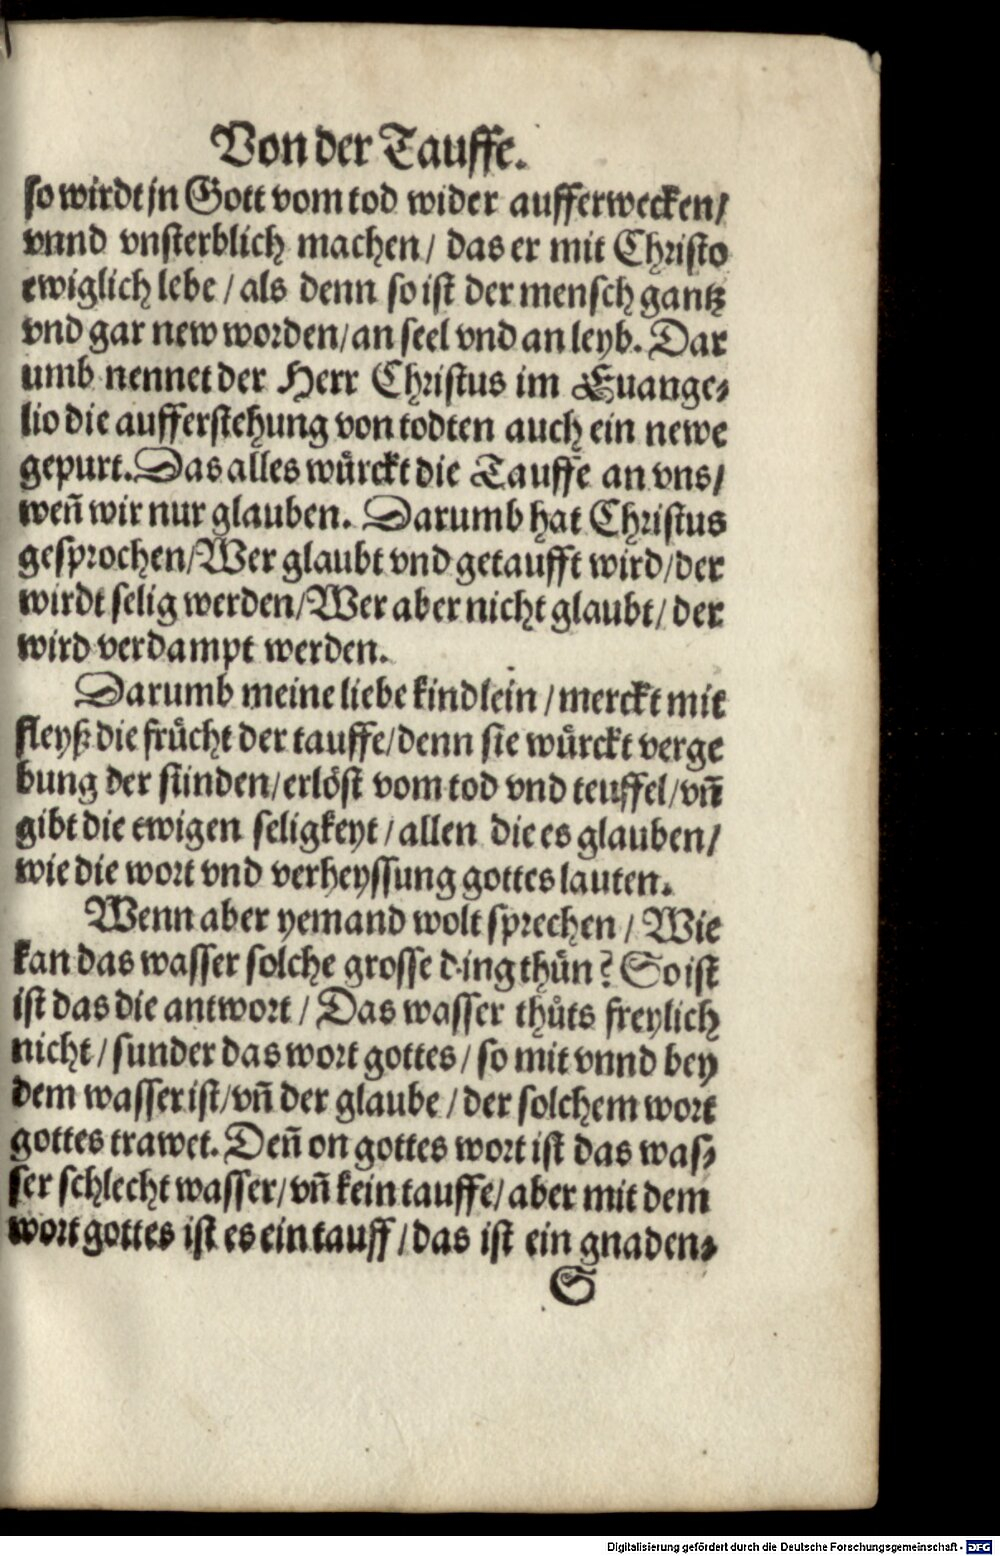 Von der Tauffe.
so wirdt jn Gott vom tod wider aufferwecken/
vnnd vnsterblich machen / das er mit Christo
ewiglich lebe / als denn so ist der mensch gantz
vnd gar new worden/an seel vnd an leyb. Dar
umb nennet der Herr Christus im Euange⸗
lio die aufferstehung von todten auch ein newe
gepurt. Das alles wuͤrckt die Tauffe an vns/
weñ wir nur glauben. Darumb hat Christus
gesprochen/Wer glaubt vnd getaufft wird/der
wirdt selig werden/Wer aber nicht glaubt/ der
wird verdampt werden.
Darumb meine liebe kindlein / merckt mit
fleyß die fruͤcht der tauffe/denn sie wuͤrckt verge
bung der suͤnden/erloͤst vom tod vnd teuffel/vñ
gibt die ewigen seligkeyt / allen die es glauben/
wie die wort vnd verheyssung gottes lauten.
Wenn aber yemand wolt sprechen / Wie
kan das wasser solche grosse ding thuͤn? So ist
ist das die antwort / Das wasser thuͤts freylich
nicht / sunder das wort gottes / so mit vnnd bey
dem wasser ist/vñ der glaube / der solchem wort
gottes trawet. Deñ on gottes wort ist das was⸗
ser schlecht wasser/vñ kein tauffe/aber mit dem
wort gottes ist es ein tauff / das ist ein gnaden⸗
S
Digitalisierung gefördert durch die Deutsche Forschungsgemeinschaft - DFG